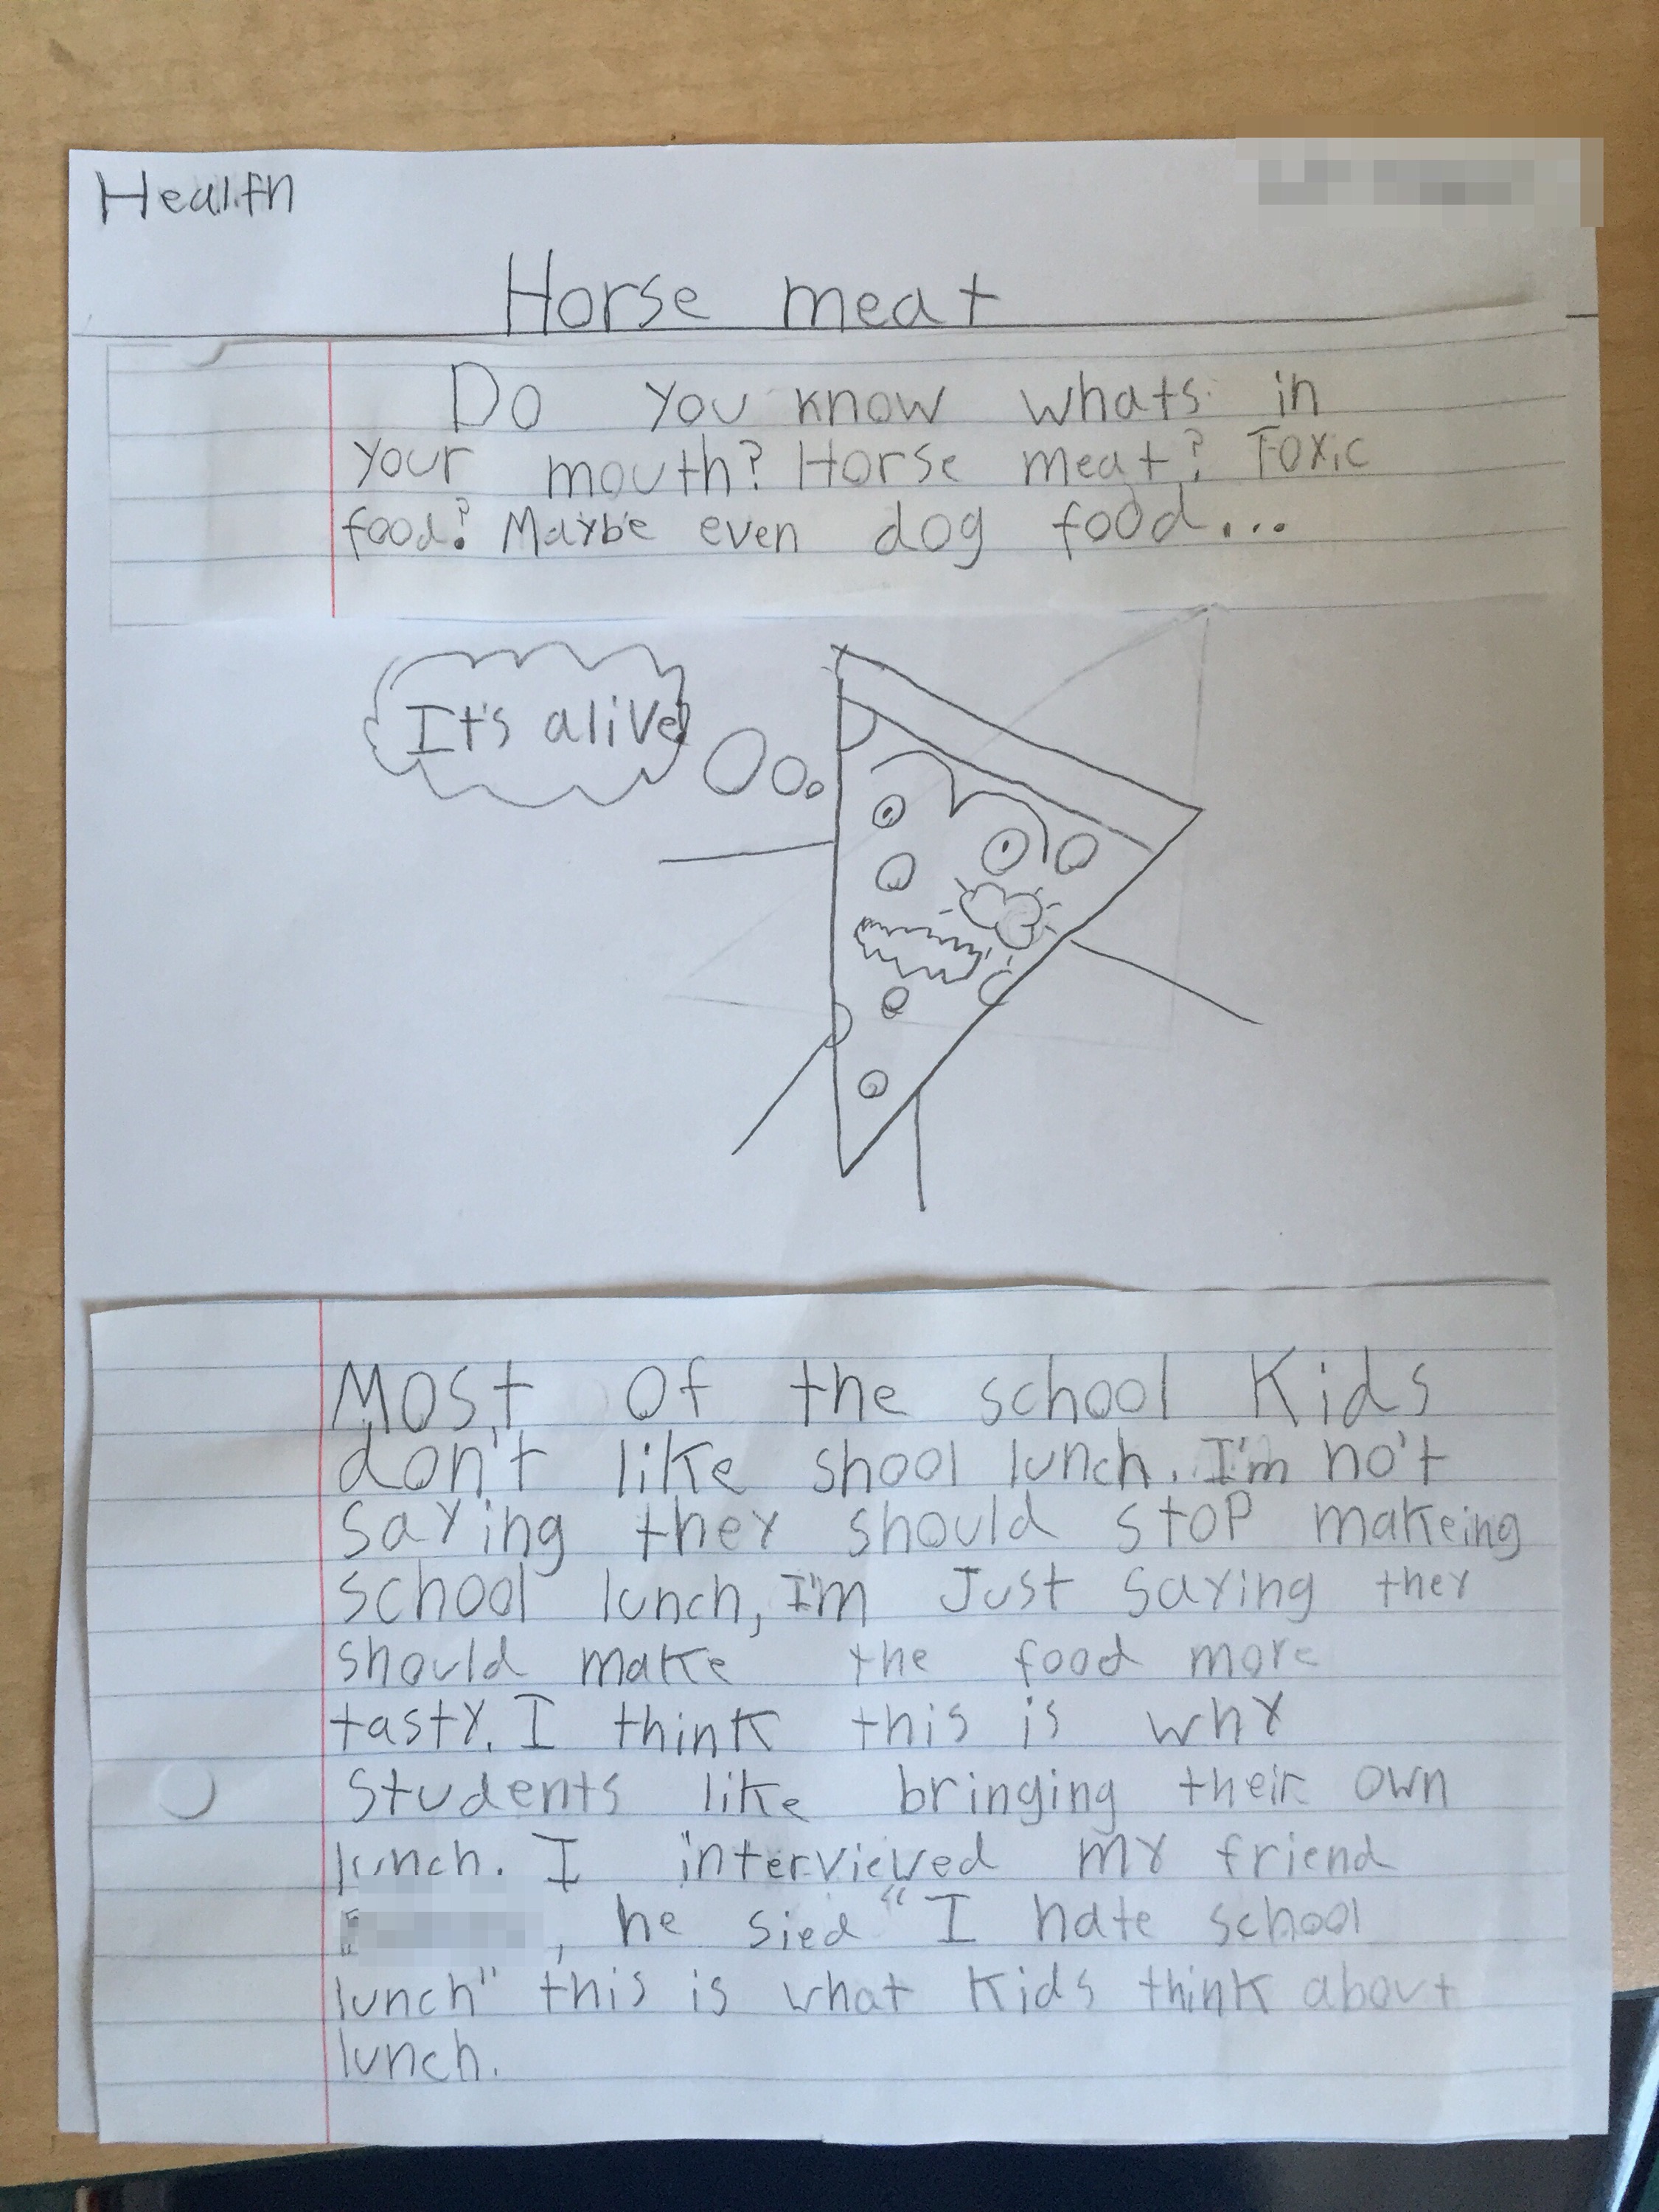 Health
Horse meat
Do you know whats in
your mouth? Horse meat? Toxic
food? Maybe even dog food...
It's alive
Most of the school kids
don't like shool lunch. I'm no't
saying they should stop makeing
school lunch, I'm Just saying they
should make the food more
tasty. I think this is why
students like bringing their own
lunch. I interviewed my friend
, he sied "I hate school
lunch" this is what kids think about
lunch.